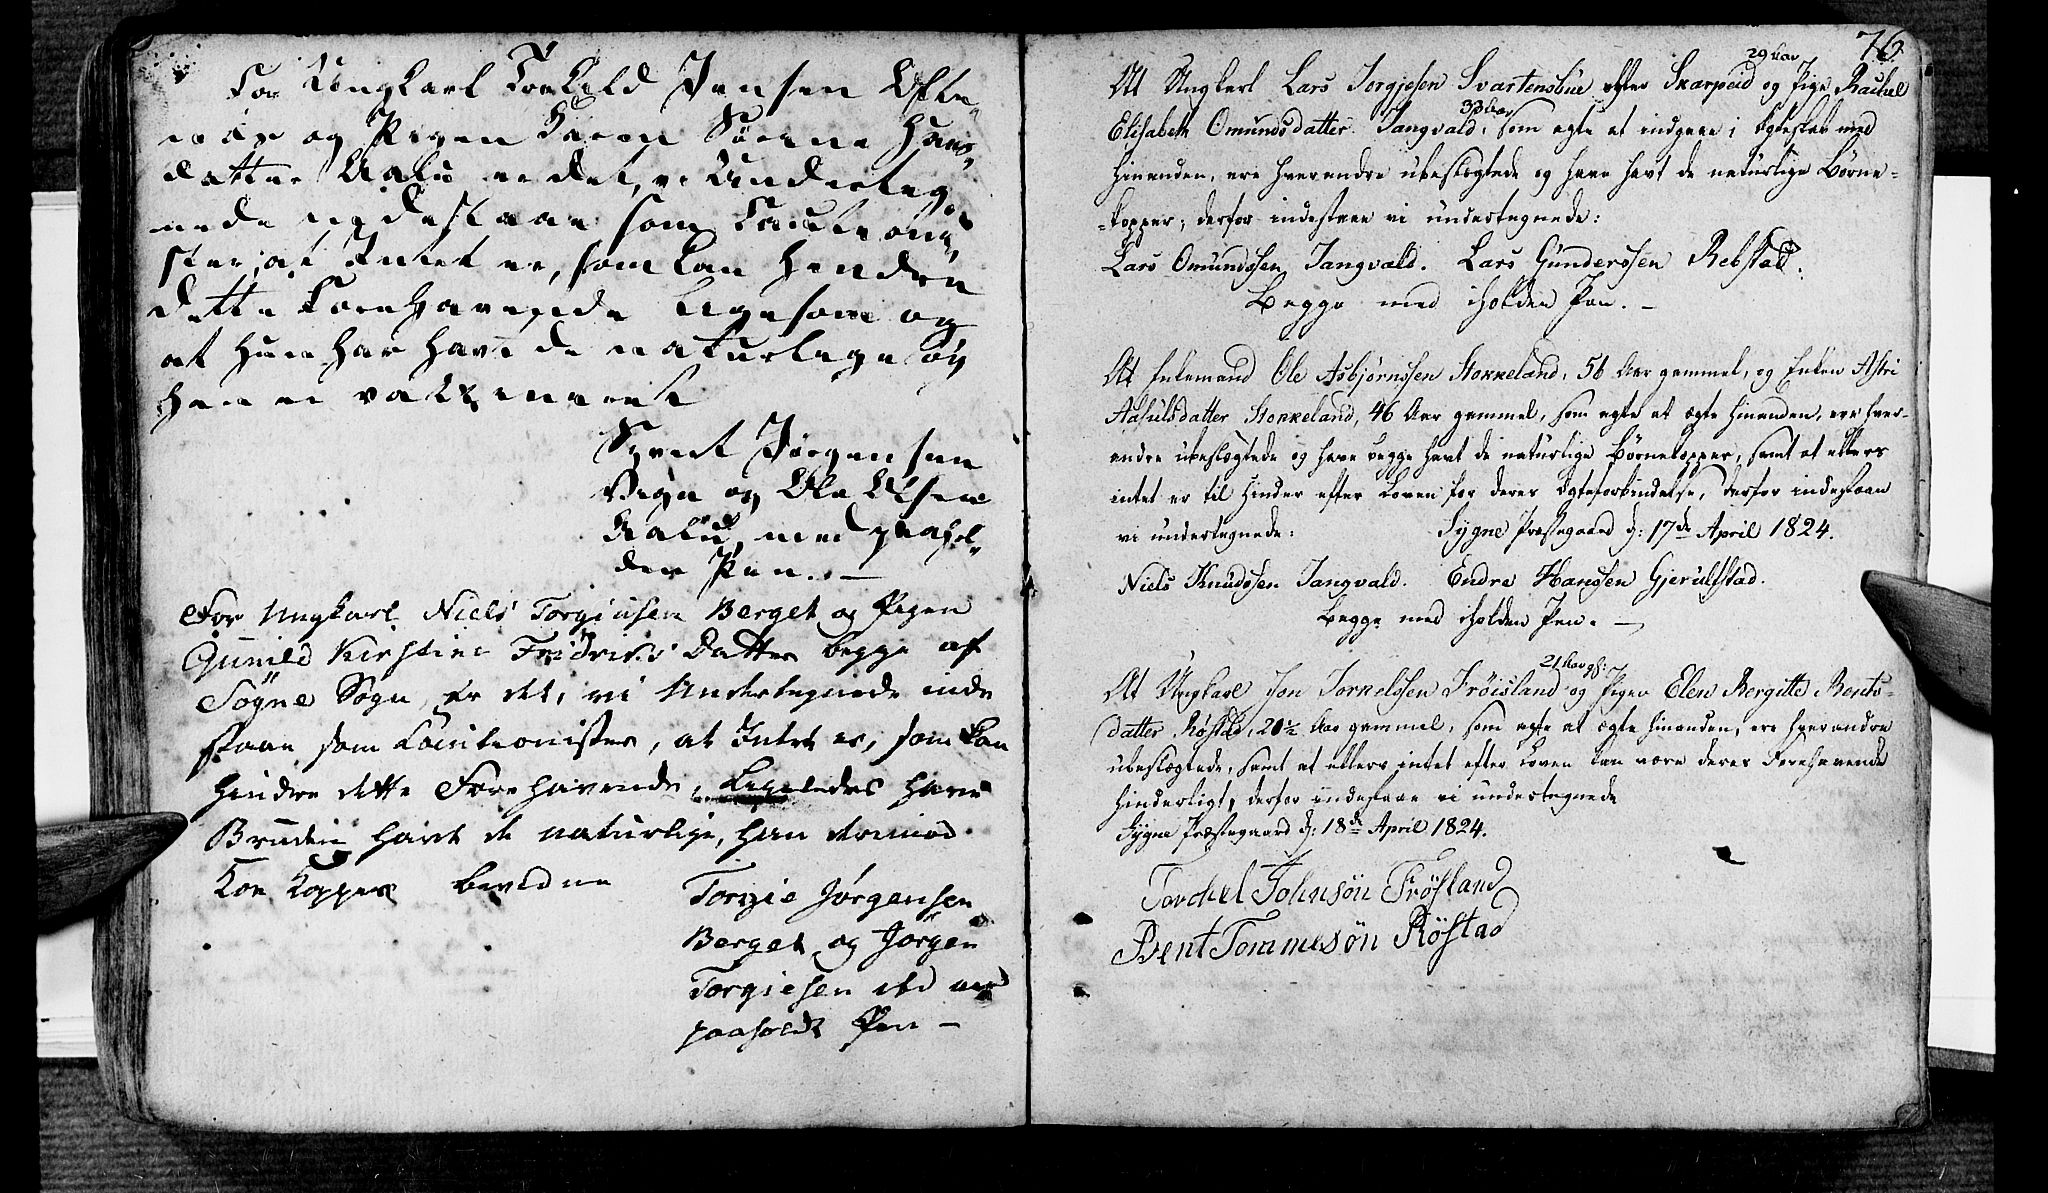 For Ungkarl Torkild Jensen Ofte-
nœs og Pigen Karen Sørine Hans
datter Aalu er det, vi Underteg
nede indestaae som Cautioni
ster, at Intet er, som kan hindre
dette Forehavende ligesom og
at hun har havt de naturlige og
han er vaccineret
Syvert Jørgensen
Vign og Ole Olsen
Aalu, med paahol-
den Pen. —
For Ungkarl Niels Torgiusen Berget og Pigen
Gunild Kirstine Fridriks Datter begge af
Søgne Sogn, er det, vi Undertegnede inde
staae som Cautionister, at Intet er, som kan
hindre dette Forehavende, Ligeledes have
Bruden havt de naturlige, han derimod
Koe Kopper
Torgie Jørgensen
Berget og Jørgen
Torgiesen ibd med
paaholdt Pen —
76.
29 Aar
At Ungkarl Lars Torgjesen Svartensbue eller Skarpeid og Pige Rachel
33 Aar
Elisabeth Omundsdatter Tangvald, som agte at indgaae i Ægteskab med
hinanden, ere hverandre ubeslægtede og have havt de naturlige Børne-
-kopper, derfor indestaae vi undertegnede:
Lars Omundssen Tangvald. Lars Gunderssen Rebstad.
Begge med iholden Pen. —
At Enkemand Ole Asbjørnssen Stokkeland, 56 Aar gammel, og Enken Astri
Aasulsdatter Stokkeland, 46 Aar gammel, som agte at ægte hinanden, ere hver-
andre ubeslægtede og have begge havt de naturlige Børnekopper, samt at ellers
intet er til Hinder efter Loven for deres Ægteforbindelse, derfor indestaae
vi undertegnede: Sygne Præstegaard d: 17de April 1824.
Niels Knudssen Tangvald. Endre Hanssen Gjerulfstad.
Begge med iholden Pen. —
21 Aar gl:
At Ungkarl Jon Torkelssen Trøisland og Pigen Elen Bergitte Bents-
datter Røstad, 20½ Aar gammel, som agte at ægte hinanden, ere hverandre
ubeslægtede, samt at ellers intet efter Loven kan være deres Forehavende
hinderligt, derfor indestaae vi undertegnede
Sygne Præstegaard d: 18de April 1824.
Torchel Johnsøn Trøsland
Bent Tommesøn Røstad